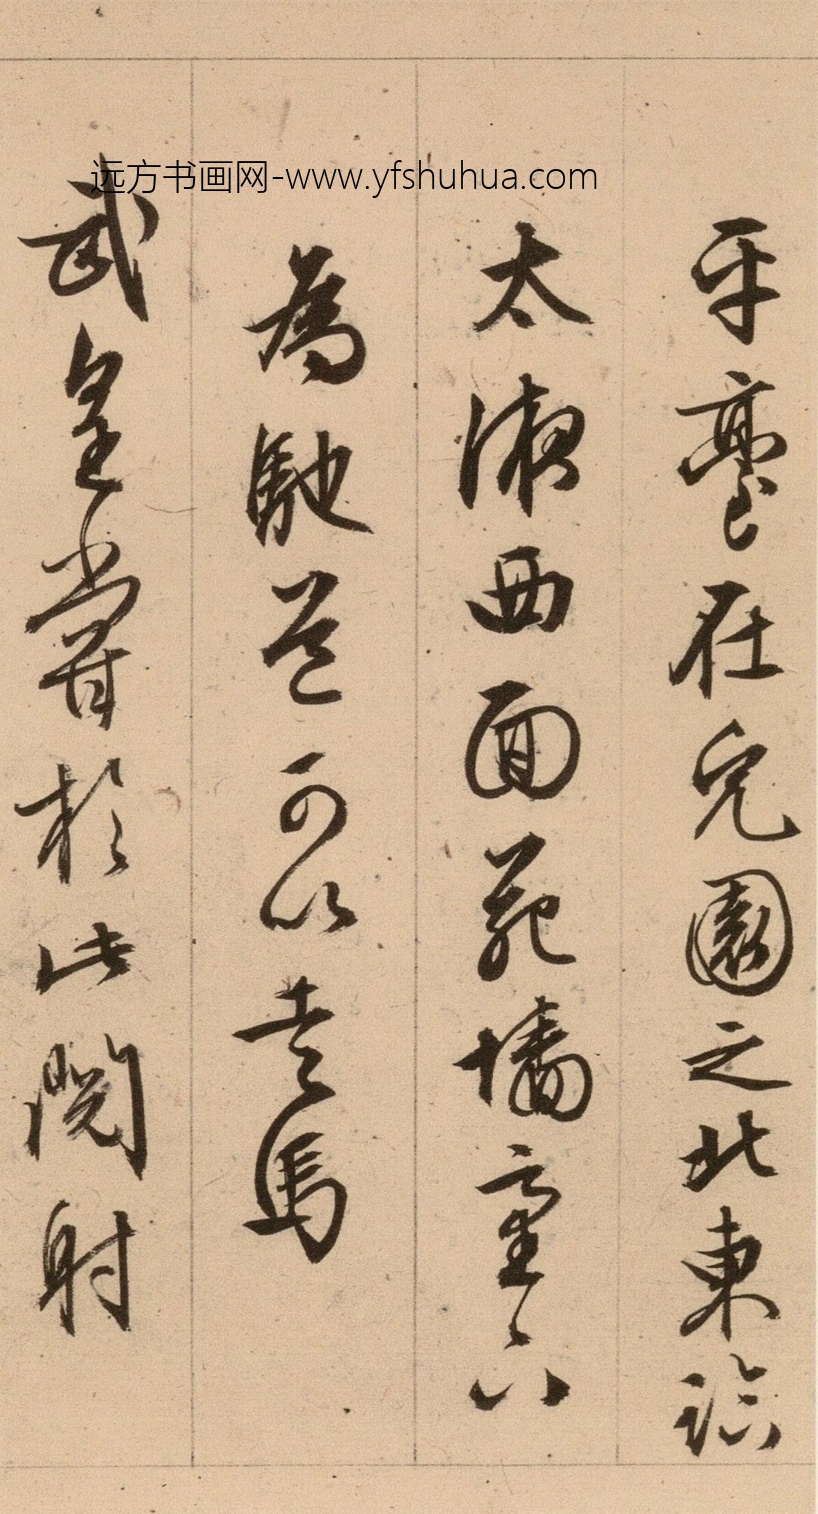 远方书画网-www.yfshuhua.com
平臺在兔園之北東臨
太液西面苑墻臺下
為馳道可以走馬
武皇嘗於此閱射